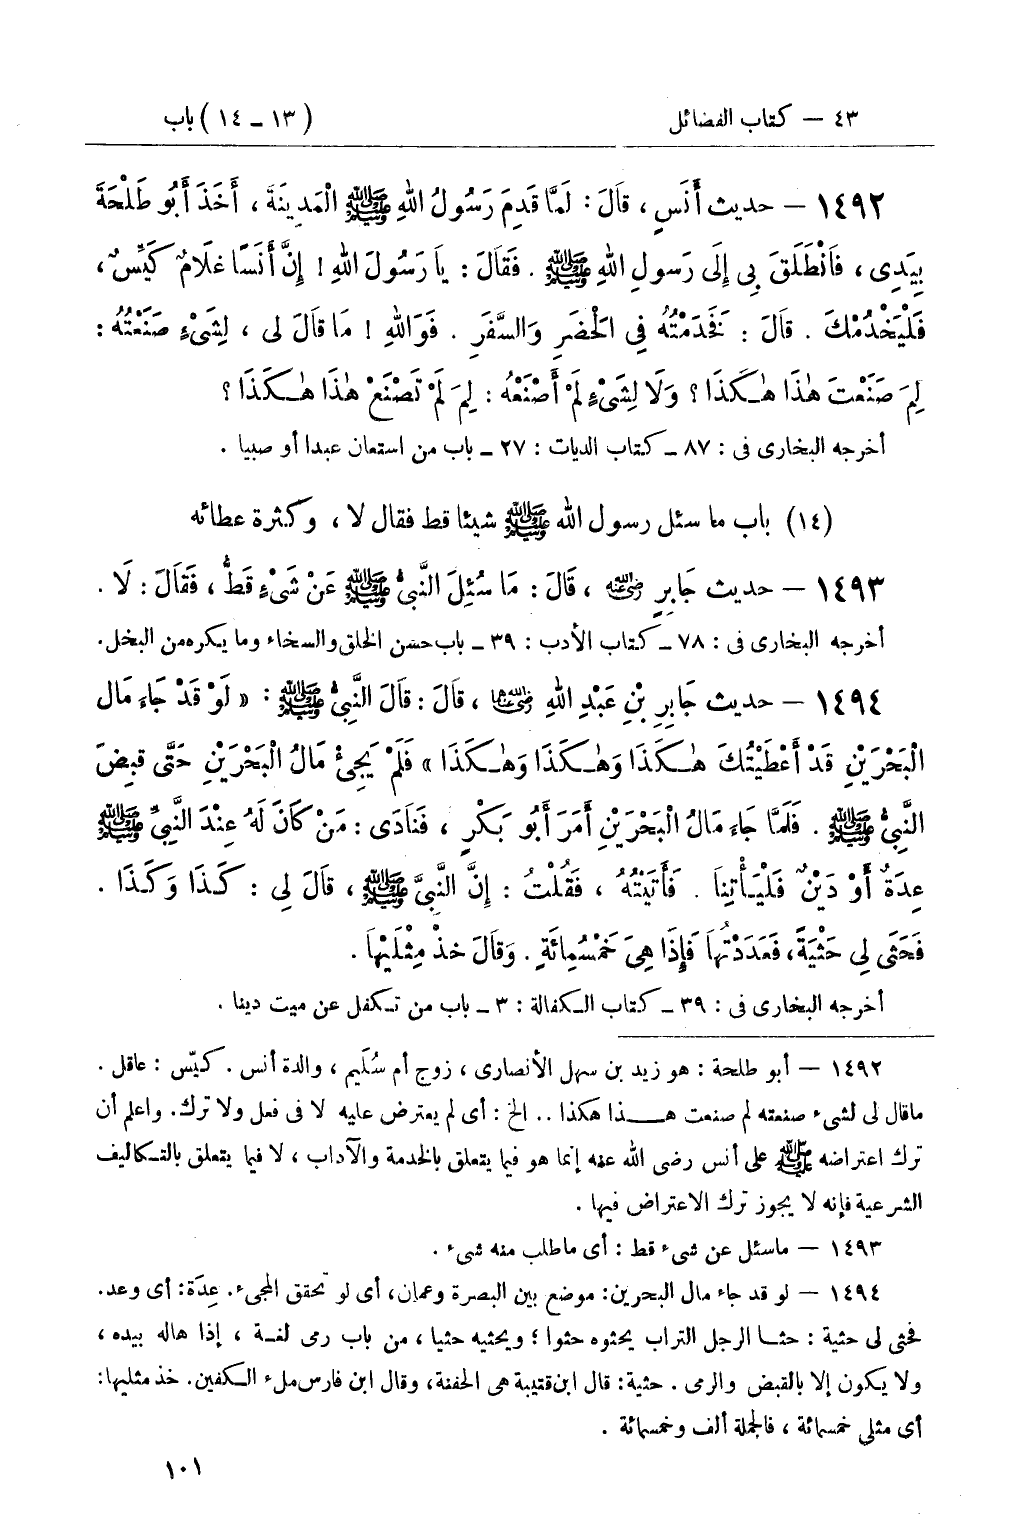 ٤٣ — كتاب الفضائل (١٣ - ١٤) باب
١٤٩٢ — حديث أَنَسٍ، قَالَ: لَمَّا قَدِمَ رَسُولُ اللهِ ﷺ الْمَدِينَةَ، أَخَذَ أَبُو طَلْحَةَ
بِيَدِى، فَانْطَلَقَ بِى إِلَى رَسولِ اللهِ ﷺ. فَقَالَ: يَا رَسُولَ اللهِ! إِنَّ أَنَسًا غلَامٌ كَيِّسٌ،
فَلْيَخْدُمْكَ. قَالَ: فَخَدَمْتُهُ فِى الْحَضَرِ وَالسَّفَرِ. فَوَاللهِ! مَا قَالَ لى، لِشَىْءٍ صَنَعْتُهُ:
لِمَ صَنَعْتَ هٰذَا هٰكَذَا؟ وَلَا لِشَىْءٍ لَمْ أَصْنَعْهُ: لِمَ لَمْ تَصْنَعْ هٰذَا هٰكَذَا؟
أخرجه البخارى فى: ٨٧ - كتاب الديات: ٢٧ - باب من استعان عبدا أو صبيا.
(١٤) باب ما سئل رسول الله ﷺ شيئا قط فقال لا، وكثرة عطائه
١٤٩٣ — حديث جَابِرٍ رضي الله عنه، قَالَ: مَا سُئِلَ النَّبِىُّ ﷺ عَنْ شَىْءٍ قَطُّ، فَقَالَ: لَا.
أخرجه البخارى فى: ٧٨ - كتاب الأدب: ٣٩ - باب حسن الخلق والسخاء وما يكره من البخل.
١٤٩٤ — حديث جَابِرِ بْنِ عَبْدِ اللهِ رضي الله عنهما، قَالَ: قَالَ النَّبِىُّ ﷺ: «لَوْ قَدْ جَاءَ مَال
الْبَحْرَيْنِ قَدْ أَعْطَيْتُكَ هٰكَذَا وَهٰكَذَا وَهٰكَذَا» فَلَمْ يَجِئْ مَالُ الْبَحْرَيْنِ حَتَّى قبِضَ
النَّبِىُّ ﷺ. فَلَمَّا جَاءَ مَالُ الْبَحْرَيْنِ أَمَرَ أَبُو بَكْرٍ، فَنَادَى: مَنْ كَانَ لَهُ عِنْدَ النَّبِىِّ ﷺ
عِدَةٌ أَوْ دَيْنٌ فَلْيَأْتِنَا. فَأَتَيْتُهُ، فَقُلْتُ: إِنَّ النَّبِىَّ ﷺ، قَالَ لِى: كَذَا وَكَذَا.
فَحَثَى لِى حَثْيَةً، فَعَدَدْتُهَا فَإِذَا هِىَ خَمْسُمِائَةٍ. وَقَالَ خذْ مِثْلَيْهَا.
أخرجه البخارى فى: ٣٩ - كتاب الكفالة: ٣ - باب من تكفل عن ميت دينا.
١٤٩٢ — أبو طلحة: هو زيد بن سهل الأنصارى، زوج أم سُلَيم، والدة أنس. كيّس: عاقل.
ماقال لى لشىء صنعته لم صنعت هذا هكذا .. الخ: أى لم يعترض عليه لا فى فعل ولا ترك. واعلم أن
ترك اعتراضه ﷺ على أنس رضى الله عنه إنما هو فيما يتعلق بالخدمة والآداب، لا فيما يتعلق بالتكاليف
الشرعية فإنه لا يجوز ترك الاعتراض فيها.
١٤٩٣ — ماسئل عن شىء قط: أى ماطلب منه شىء.
١٤٩٤ — لو قد جاء مال البحرين: موضع بين البصرة وعمان، أى لو تحقق المجىء. عِدَة: أى وعد.
فحثى لى حثية: حثا الرجل التراب يحثوه حثوا؛ ويحثيه حثيا، من باب رمى لغة، إذا هاله بيده،
ولا يكون إلا بالقبض والرمى. حثية: قال ابن قتيبة هى الحفنة، وقال ابن فارس ملء الكفين. خذ مثليها:
أى مثلي خمسمائة، فالجملة ألف وخمسمائة.
١٠١